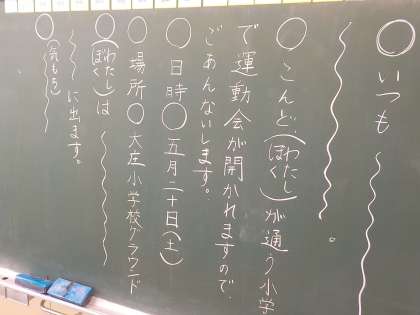 ◯いつも〜〜
〜〜。
◯こんど、(わたし ぼく)が通う小学
で運動会が開かれますので、
ごあんないします。
◯日時◯五月二十日(土)
◯場所◯大庄小学校グラウンド
◯(わたし ぼく)は〜〜
〜〜に出ます。
◯(気もち)〜〜